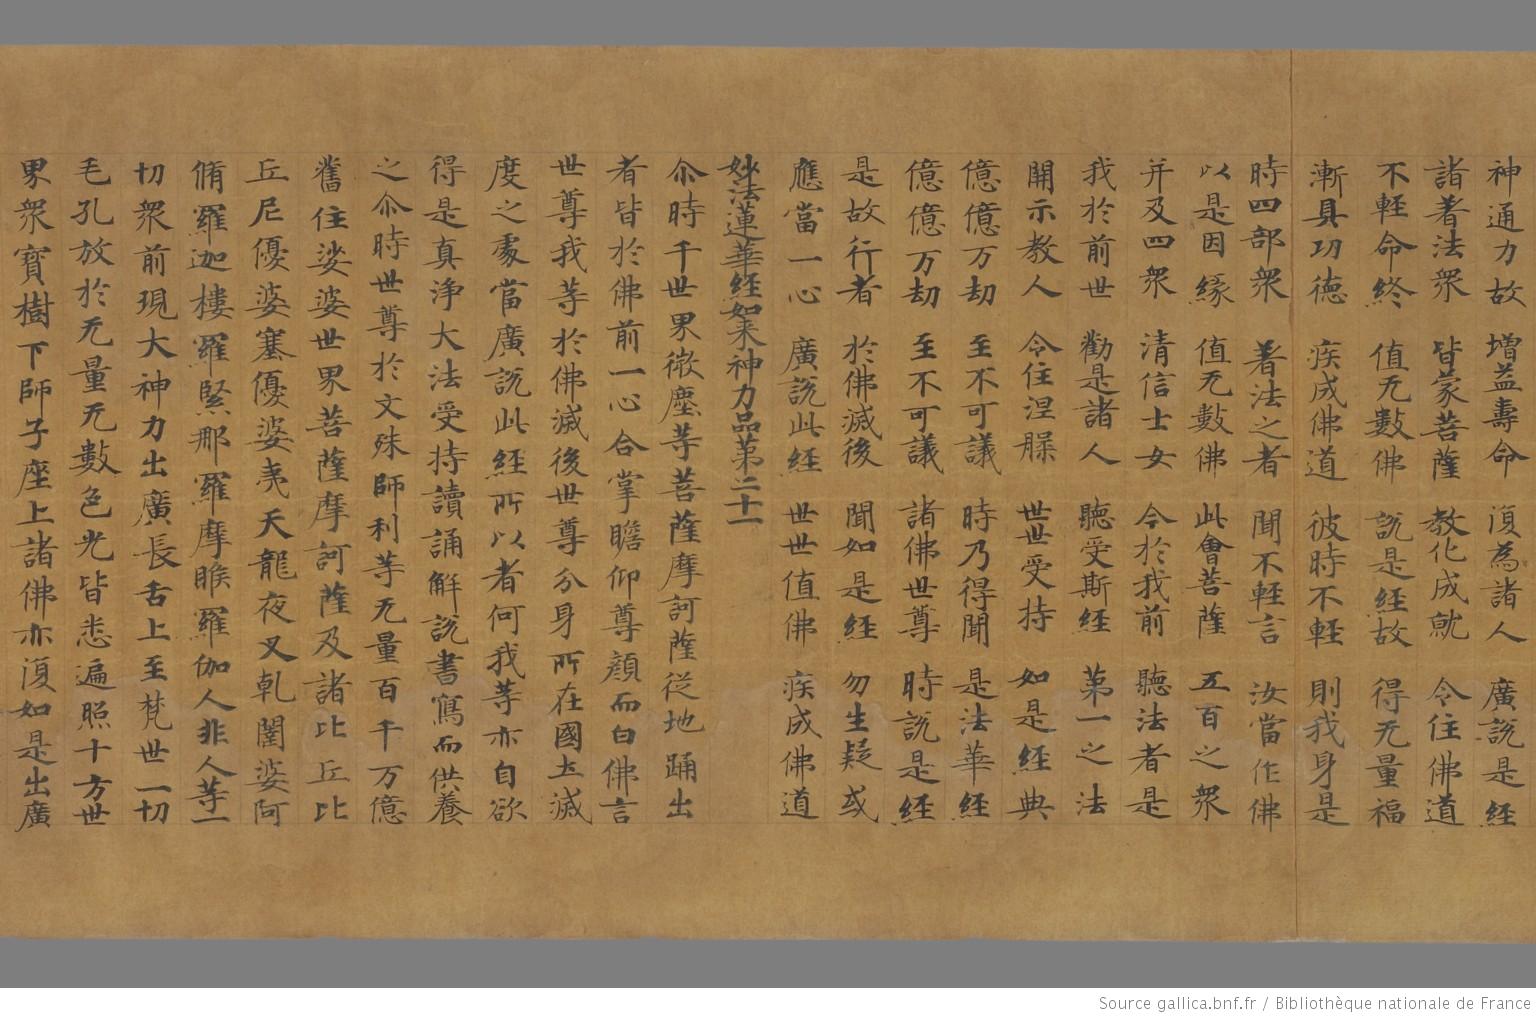 神通力故　增益壽命　復為諸人　廣說是經
諸著法衆　皆蒙菩薩　教化成就　令住佛道
不軽命終　值无數佛　說是經故　得无量福
漸具功德　疾成佛道　彼時不軽　則我身是
時四部衆　著法之者　聞不軽言　汝當作佛
以是因緣　值无數佛　此會菩薩　五百之衆
并及四衆　清信士女　今於我前　聽法者是
我於前世　勸是諸人　聽受斯經　第一之法
開示教人　令住涅槃　世世受持　如是經典
億億万劫　至不可議　時乃得聞　是法華經
億億万劫　至不可議　諸佛世尊　時說是經
是故行者　於佛滅後　聞如是經　勿生疑或
應當一心　廣說此經　世世值佛　疾成佛道
妙法蓮華經如来神力品第二十一
尒時千世界微塵等菩薩摩訶薩從地踊出
者皆於佛前一心合掌瞻仰尊顏而白佛言
世尊我等於佛滅後世尊分身所在國土滅
度之處當廣說此經所以者何我等亦自欲
得是真淨大法受持讀誦解說書寫而供養
之尒時世尊於文殊師利等无量百千万億
舊住娑婆世界菩薩摩訶薩及諸比丘比
丘尼優婆塞優婆夷天龍夜叉乹闥婆阿
脩羅迦樓羅緊那羅摩睺羅伽人非人等一
切衆前現大神力出廣長舌上至梵世一切
毛孔放於无量无數色光皆悉遍照十方世
界衆寶樹下師子座上諸佛亦復如是出廣
Source gallica.bnf.fr / Bibliothèque nationale de France